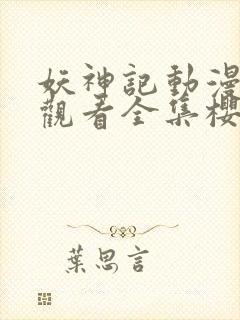 妖神記動漫
觀看全集櫻
葉思言